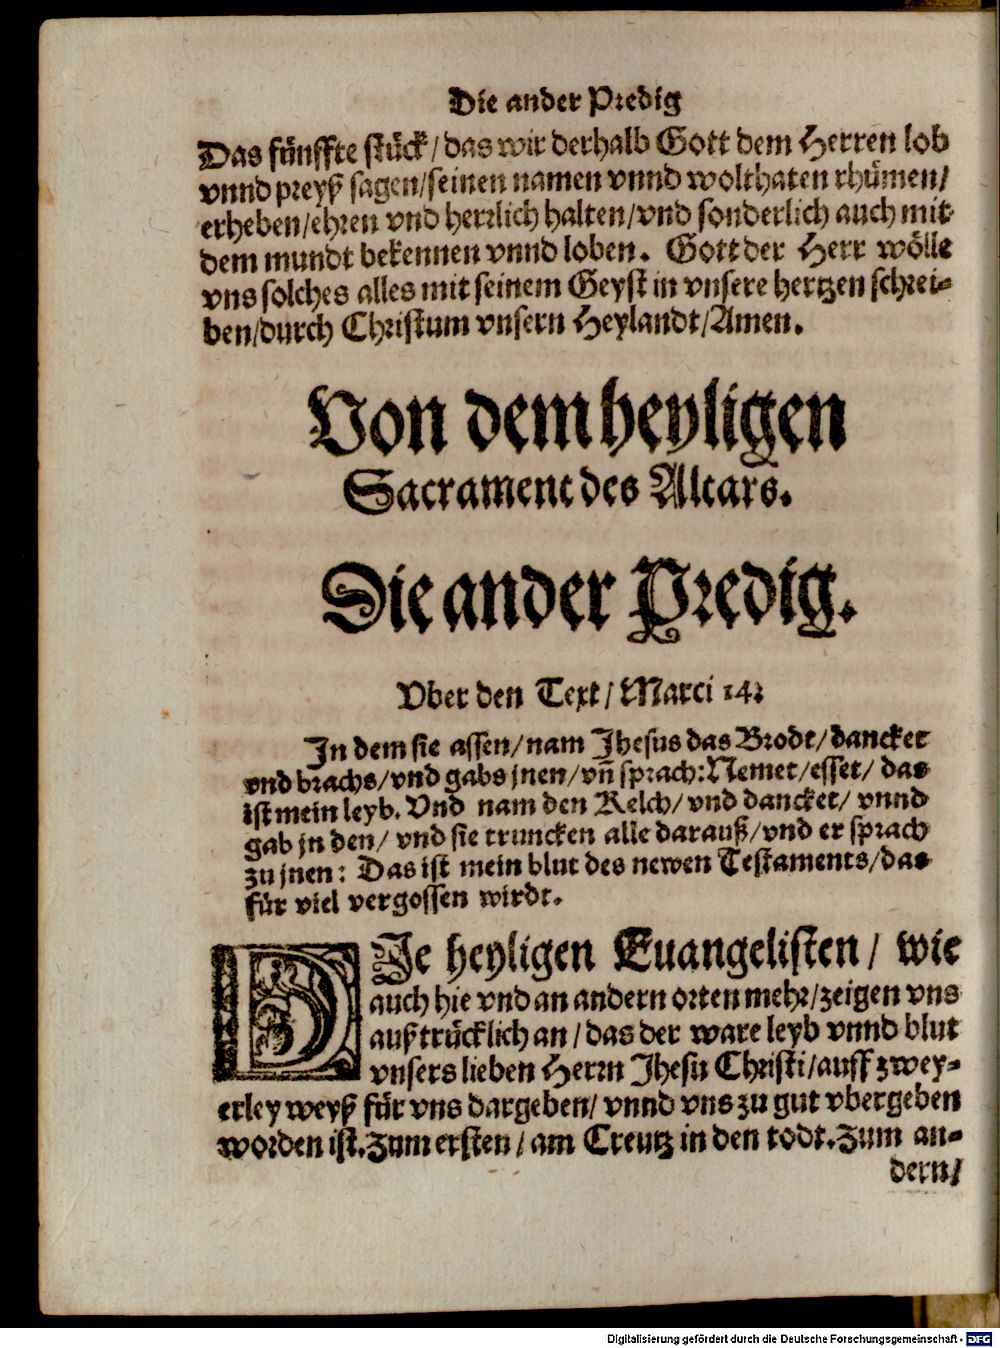 Die ander Predig
Das fünffte stück/das wir derhalb Gott dem Herren lob
vnnd preyß sagen/seinen namen vnnd wolthaten rhümen/
erheben/ehren vnd herrlich halten/vnd sonderlich auch mit
dem mundt bekennen vnnd loben. Gott der Herr wölle
vns solches alles mit seinem Geyst in vnsere hertzen schrei-
ben/durch Christum vnsern Heylandt/Amen.
Von dem heyligen
Sacrament des Altars.
Die ander Predig.
Vber den Text/Marci 14.
In dem sie assen/nam Jhesus das Brodt/dancket
vnd brachs/vnd gabs jnen/vñ sprach:Nemet/esset/ das
ist mein leyb. Vnd nam den Kelch/vnd dancket/ vnnd
gab jn den/ vnd sie truncken alle darauß/vnd er sprach
zu jnen: Das ist mein blut des newen Testaments/das
für viel vergossen wirdt.
DIe heyligen Euangelisten/ wie
auch hie vnd an andern orten mehr/zeigen vns
außtrücklich an/das der ware leyb vnnd blut
vnsers lieben Herrn Jhesu Christi/auff zwey-
erley weyß für vns dargeben/ vnnd vns zu gut vbergeben
worden ist.Zum ersten/am Creutz in den todt.Zum an-
dern/
Digitalisierung gefördert durch die Deutsche Forschungsgemeinschaft - DFG